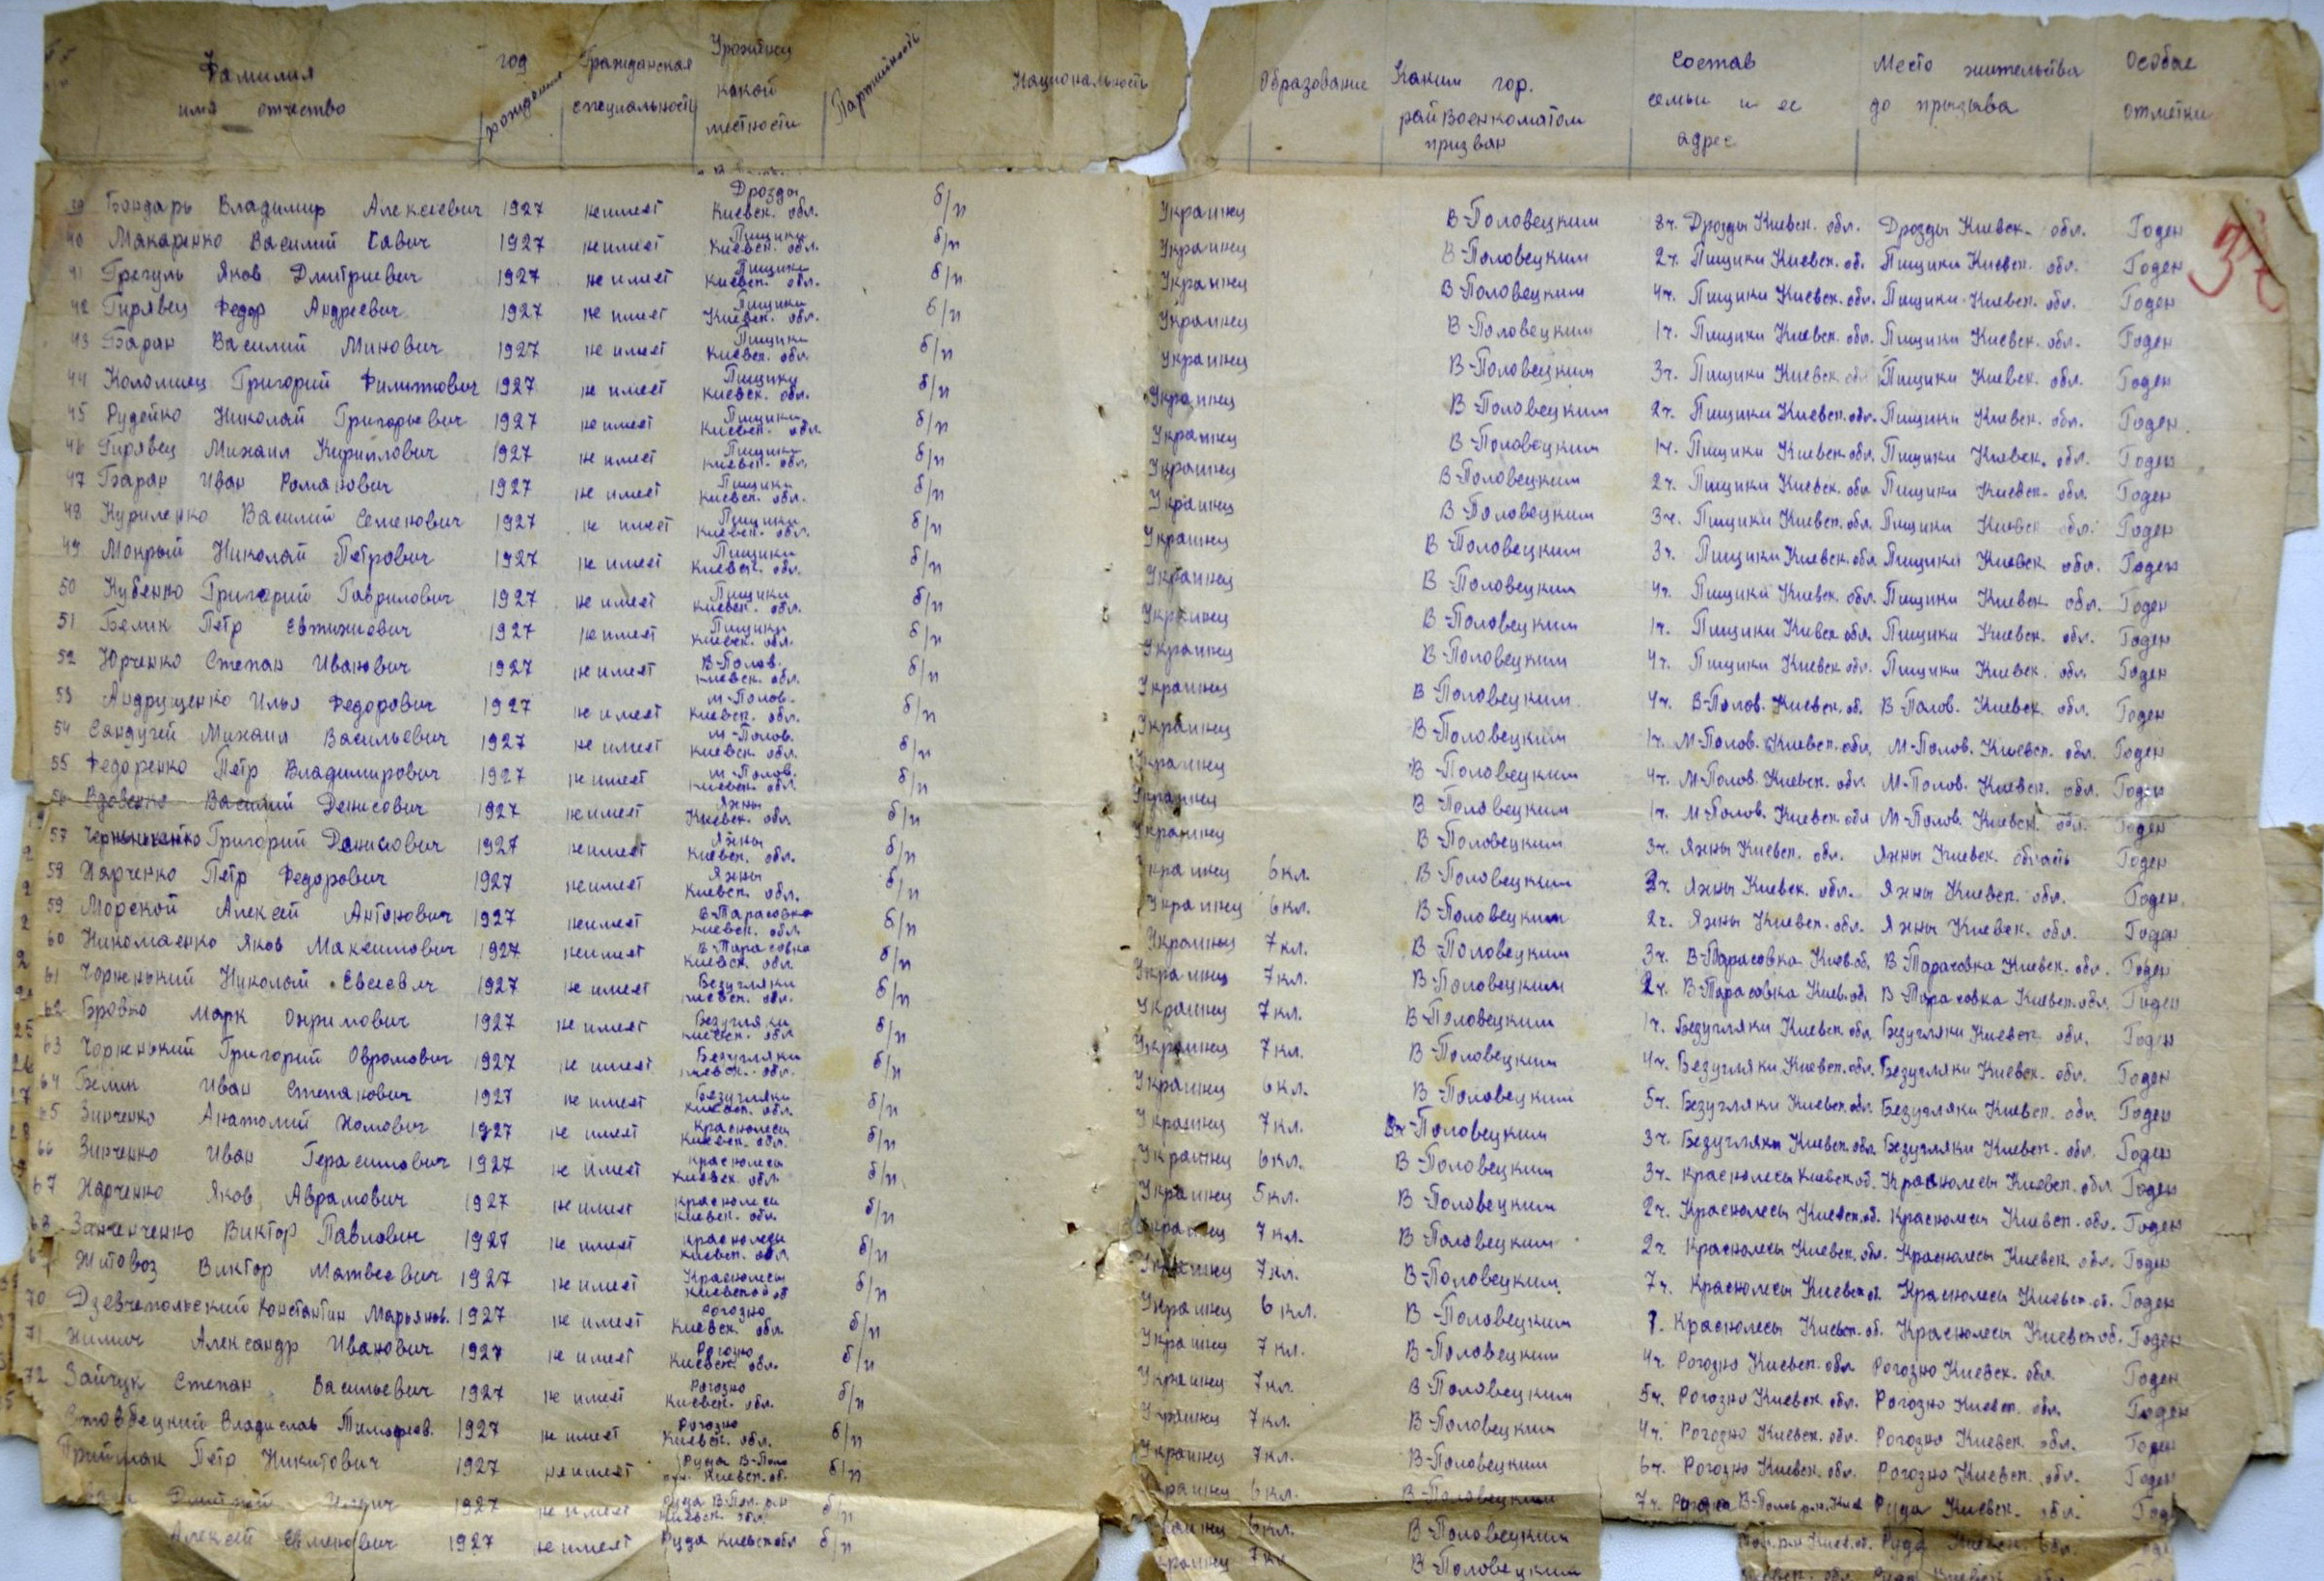 Фамилия имя отчество год рождения Гражданская специальность Урожинец какой местности Партийность Национальность Образование Каким гор. райвоенкоматом призван Состав семьи и ее адрес Место жительства до призыва Особые отметки
39 Бондарь Владимир Алексеевич 1927 не имеет Дрозды Киевск. обл. б/п Украинец В-Половецким 8ч. Дрозды Киевск. обл. Дрозды Киевск. обл. Годен
40 Макаренко Василий Савич 1927 не имеет Пищики Киевск. обл. б/п Украинец В-Половецким 2ч. Пищики Киевск. об. Пищики Киевск. обл. Годен
41 Грегуль Яков Дмитриевич 1927 не имеет Пищики Киевск. обл. б/п Украинец В-Половецким 4ч. Пищики Киевск. обл. Пищики Киевск. обл. Годен
42 Гирявец Федор Андреевич 1927 не имеет Пищики Киевск. обл. б/п Украинец В-Половецким 1ч. Пищики Киевск. обл. Пищики Киевск. обл. Годен
43 Баран Василий Минович 1927 не имеет Пищики Киевск. обл. б/п Украинец В-Половецким 3ч. Пищики Киевск. обл. Пищики Киевск. обл. Годен
44 Коломиец Григорий Филиппович 1927 не имеет Пищики Киевск. обл. б/п Украинец В-Половецким 2ч. Пищики Киевск. обл. Пищики Киевск. обл. Годен
45 Рудейко Николай Григорьевич 1927 не имеет Пищики Киевск. обл. б/п Украинец В-Половецким 1ч. Пищики Киевск. обл. Пищики Киевск. обл. Годен
46 Гирявец Михаил Кириллович 1927 не имеет Пищики Киевск. обл. б/п Украинец В-Половецким 2ч. Пищики Киевск. обл. Пищики Киевск. обл. Годен
47 Баран Иван Романович 1927 не имеет Пищики Киевск. обл. б/п Украинец В-Половецким 3ч. Пищики Киевск. обл. Пищики Киевск. обл. Годен
48 Куриленко Василий Семенович 1927 не имеет Пищики Киевск. обл. б/п Украинец В-Половецким 3ч. Пищики Киевск. обл. Пищики Киевск. обл. Годен
49 Мокрый Николай Петрович 1927 не имеет Пищики Киевск. обл. б/п Украинец В-Половецким 4ч. Пищики Киевск. обл. Пищики Киевск. обл. Годен
50 Кубенко Григорий Гаврилович 1927 не имеет Пищики Киевск. обл. б/п Украинец В-Половецким 1ч. Пищики Киевск. обл. Пищики Киевск. обл. Годен
51 Белик Петр 1927 не имеет Пищики Киевск. обл. б/п Украинец В-Половецким 4ч. Пищики Киевск. обл. Пищики Киевск. обл. Годен
52 Юрченко Степан Иванович 1927 не имеет В-Полов. Киевск. обл. б/п Украинец В-Половецким 4ч. В-Полов. Киевск. об. В-Полов. Киевск. обл. Годен
53 Андрущенко Илья Федорович 1927 не имеет М-Полов. Киевск. обл. б/п Украинец В-Половецким 1ч. М-Полов. Киевск. обл. М-Полов. Киевск. обл. Годен
54 Сандугей Михаил Васильевич 1927 не имеет М-Полов. Киевск. обл. б/п Украинец В-Половецким 4ч. М-Полов. Киевск. обл. М-Полов. Киевск. обл. Годен
55 Федоренко Петр Владимирович 1927 не имеет М-Полов. Киевск. обл. б/п Украинец В-Половецким 1ч. М-Полов. Киевск. обл. М-Полов. Киевск. обл. Годен
56 Вдовенко Василий Денисович 1927 не имеет Яхны Киевск. обл. б/п Украинец В-Половецким 3ч. Яхны Киевск. обл. Яхны Киевск. область Годен
57 Григорий Денисович 1927 не имеет Яхны Киевск. обл. б/п Украинец 6 кл. В-Половецким Яхны Киевск. обл. Яхны Киевск. обл. Годен
58 Харченко Петр Федорович 1927 не имеет Яхны Киевск. обл. б/п Украинец 6 кл. В-Половецким 2ч. Яхны Киевск. обл. Яхны Киевск. обл. Годен
59 Морской Алексей Антонович 1927 не имеет В-Тарасовка Киевск. обл. б/п Украинец 7 кл. В-Половецким 3ч. В-Тарасовка Киев. об. В-Тарасовка Киевск. обл. Годен
60 Николаенко Яков Максимович 1927 не имеет В-Тарасовка Киевск. обл. б/п Украинец 7 кл. В-Половецким 2ч. В-Тарасовка Киев. об. В-Тарасовка Киевск. обл. Годен
61 Чорненький Николай Евсеевич 1927 не имеет Безугляки Киевск. обл. б/п Украинец 7 кл. В-Половецким 1ч. Безугляки Киевск. обл. Безугляки Киевск. обл. Годен
62 Бровко Марк Онримович 1927 не имеет Безугляки Киевск. обл. б/п Украинец 7 кл. В-Половецким 4ч. Безугляки Киевск. обл. Безугляки Киевск. обл. Годен
63 Чорненький Григорий Оврамович 1927 не имеет Безугляки Киевск. обл. б/п Украинец 6 кл. В-Половецким 5ч. Безугляки Киевск. обл. Безугляки Киевск. обл. Годен
64 Белик Иван Степанович 1927 не имеет Безугляки Киевск. обл. б/п Украинец 7 кл. В-Половецким 3ч. Безугляки Киевск. обл. Безугляки Киевск. обл. Годен
65 Зинченко Анатолий Хомович 1927 не имеет Краснолесы Киевск. обл. б/п Украинец 6 кл. В-Половецким 3ч. Краснолесы Киевск. об. Краснолесы Киевск. обл. Годен
66 Зинченко Иван Герасимович 1927 не имеет Краснолесы Киевск. обл. б/п Украинец 5 кл. В-Половецким 2ч. Краснолесы Киевск. об. Краснолесы Киевск. обл. Годен
67 Харченко Яков Аврамович 1927 не имеет Краснолесы Киевск. обл. б/п Украинец 7 кл. В-Половецким 2ч. Краснолесы Киевск. обл. Краснолесы Киевск. обл. Годен
68 Виктор Павлович 1927 не имеет Краснолесы Киевск. обл. б/п Украинец 7 кл. В-Половецким 7ч. Краснолесы Киевск. об. Краснолесы Киевск. об. Годен
Житовоз Виктор Матвеевич 1927 не имеет Краснолесы Киевск. об. б/п Украинец 6 кл. В-Половецким Краснолесы Киевск. об. Краснолесы Киевск. об. Годен
70 Дзевчепольский Константин Марьянов. 1927 не имеет Рогозно Киевск. обл. б/п Украинец 7 кл. В-Половецким 4ч. Рогозно Киевск. обл. Рогозно Киевск. обл. Годен
71 Химич Александр Иванович 1927 не имеет Рогозно Киевск. обл. б/п Украинец 7 кл. В-Половецким 5ч. Рогозно Киевск. обл. Рогозно Киевск. обл. Годен
72 Зайчук Степан Васильевич 1927 не имеет Рогозно Киевск. обл. б/п Украинец 7 кл. В-Половецким 4ч. Рогозно Киевск. обл. Рогозно Киевск. обл. Годен
Стовбецкий Владислав Тимофеев. 1927 не имеет Рогозно Киевск. обл. б/п Украинец 7 кл. В-Половецким 6ч. Рогозно Киевск. обл. Рогозно Киевск. обл. Годен
Приймак Петр Никитович 1927 не имеет Руда В-Поло Киевск. об. б/п 6 кл. В-Половецким 7ч. Руда Киевск. обл.
Дмитрий 1927 не имеет Руда В-Пол. р-н Киевск. обл. б/п 6 кл. В-Половецким Руда Киевск. обл.
Алексей Евменович 1927 не имеет Руда Киевск обл б/п 7 кл В-Половецким